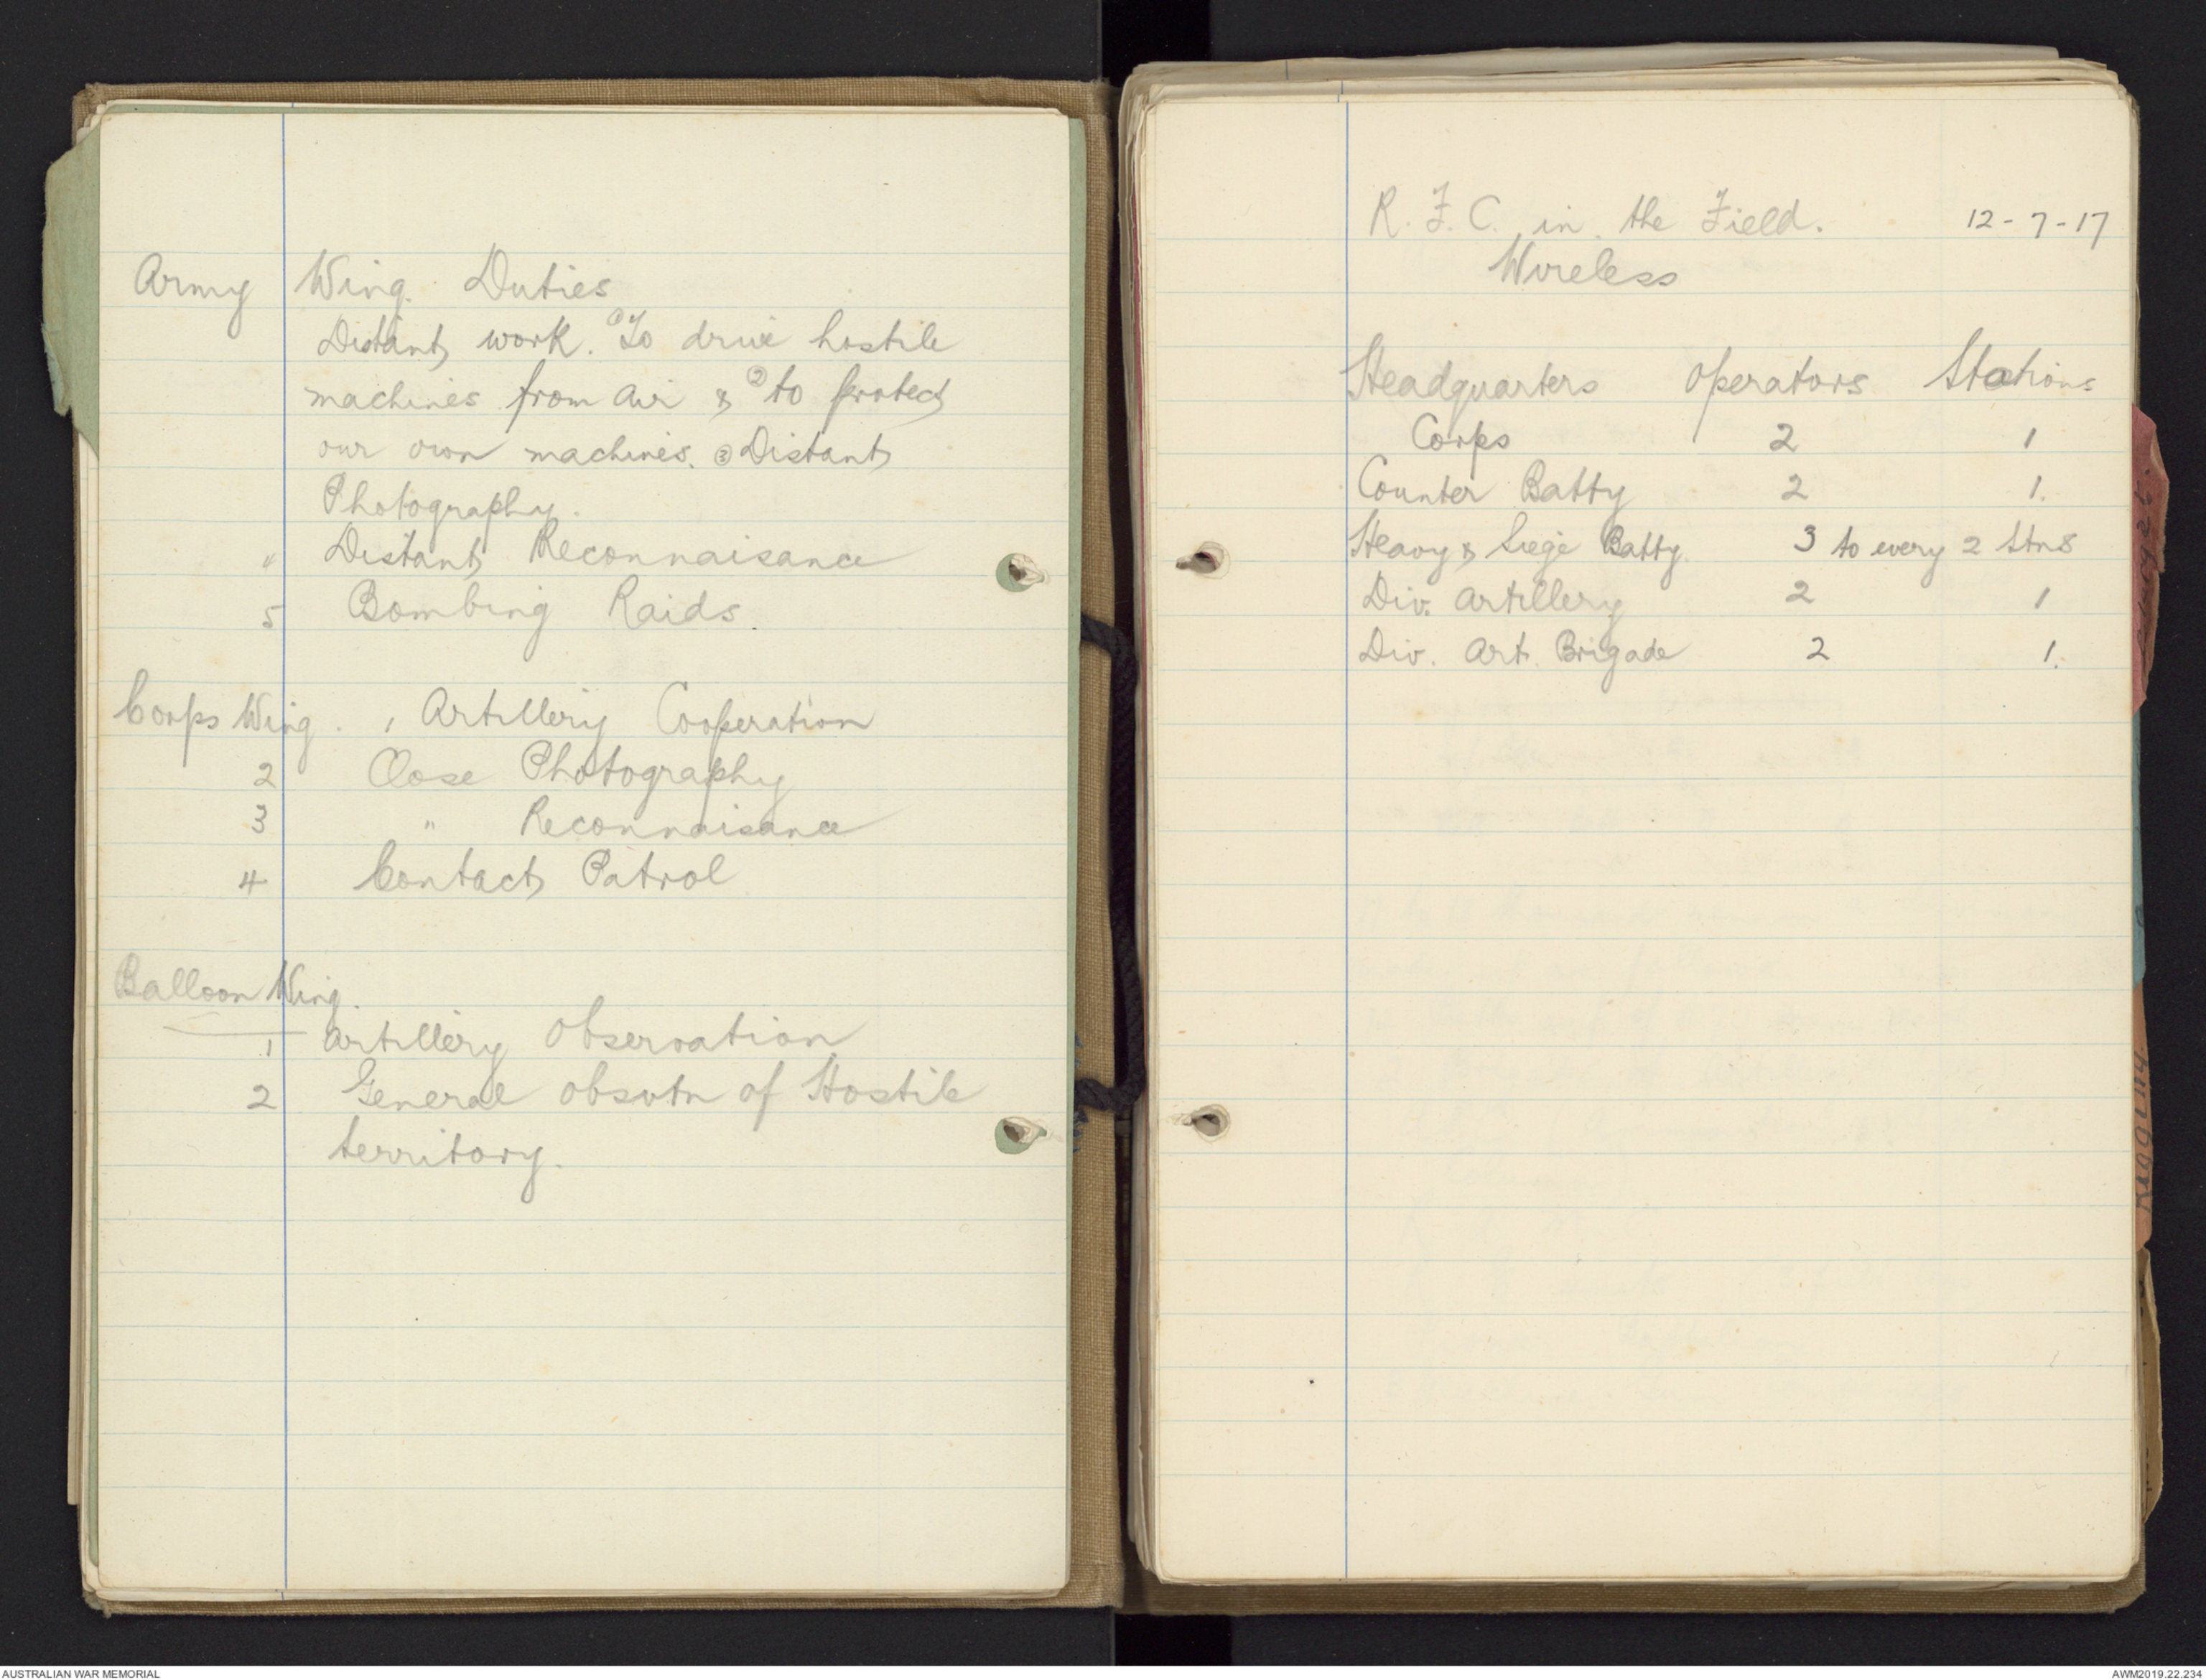 Army Wing. Duties
Distant work. ① To drive hostile
machines from air & ② to protect
our own machines. ③ Distant
Photography.
" Distant Reconnaisance
5 Bombing Raids.
Corps Wing. 1 Artillery Cooperation
2 Close Photography
3 " Reconnaisance
4 Contact Patrol
Balloon Wing.
1 Artillery Observation
2 General obsvtn of Hostile
territory.
R. F. C. in the Field. 12-7-17
Wireless
Headquarters Operators Stations
Corps 2 1
Counter Batty 2 1.
Heavy & Siege Batty. 3 to every 2 Stns
Div. Artillery 2 1
Div. Art. Brigade 2 1.
RIGGING
AUSTRALIAN WAR MEMORIAL
AWM2019.22.234